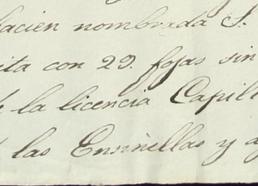 lacien nombrada S.
ita con 29. fojas sin
la licencia Capill
las Ensinellas y a